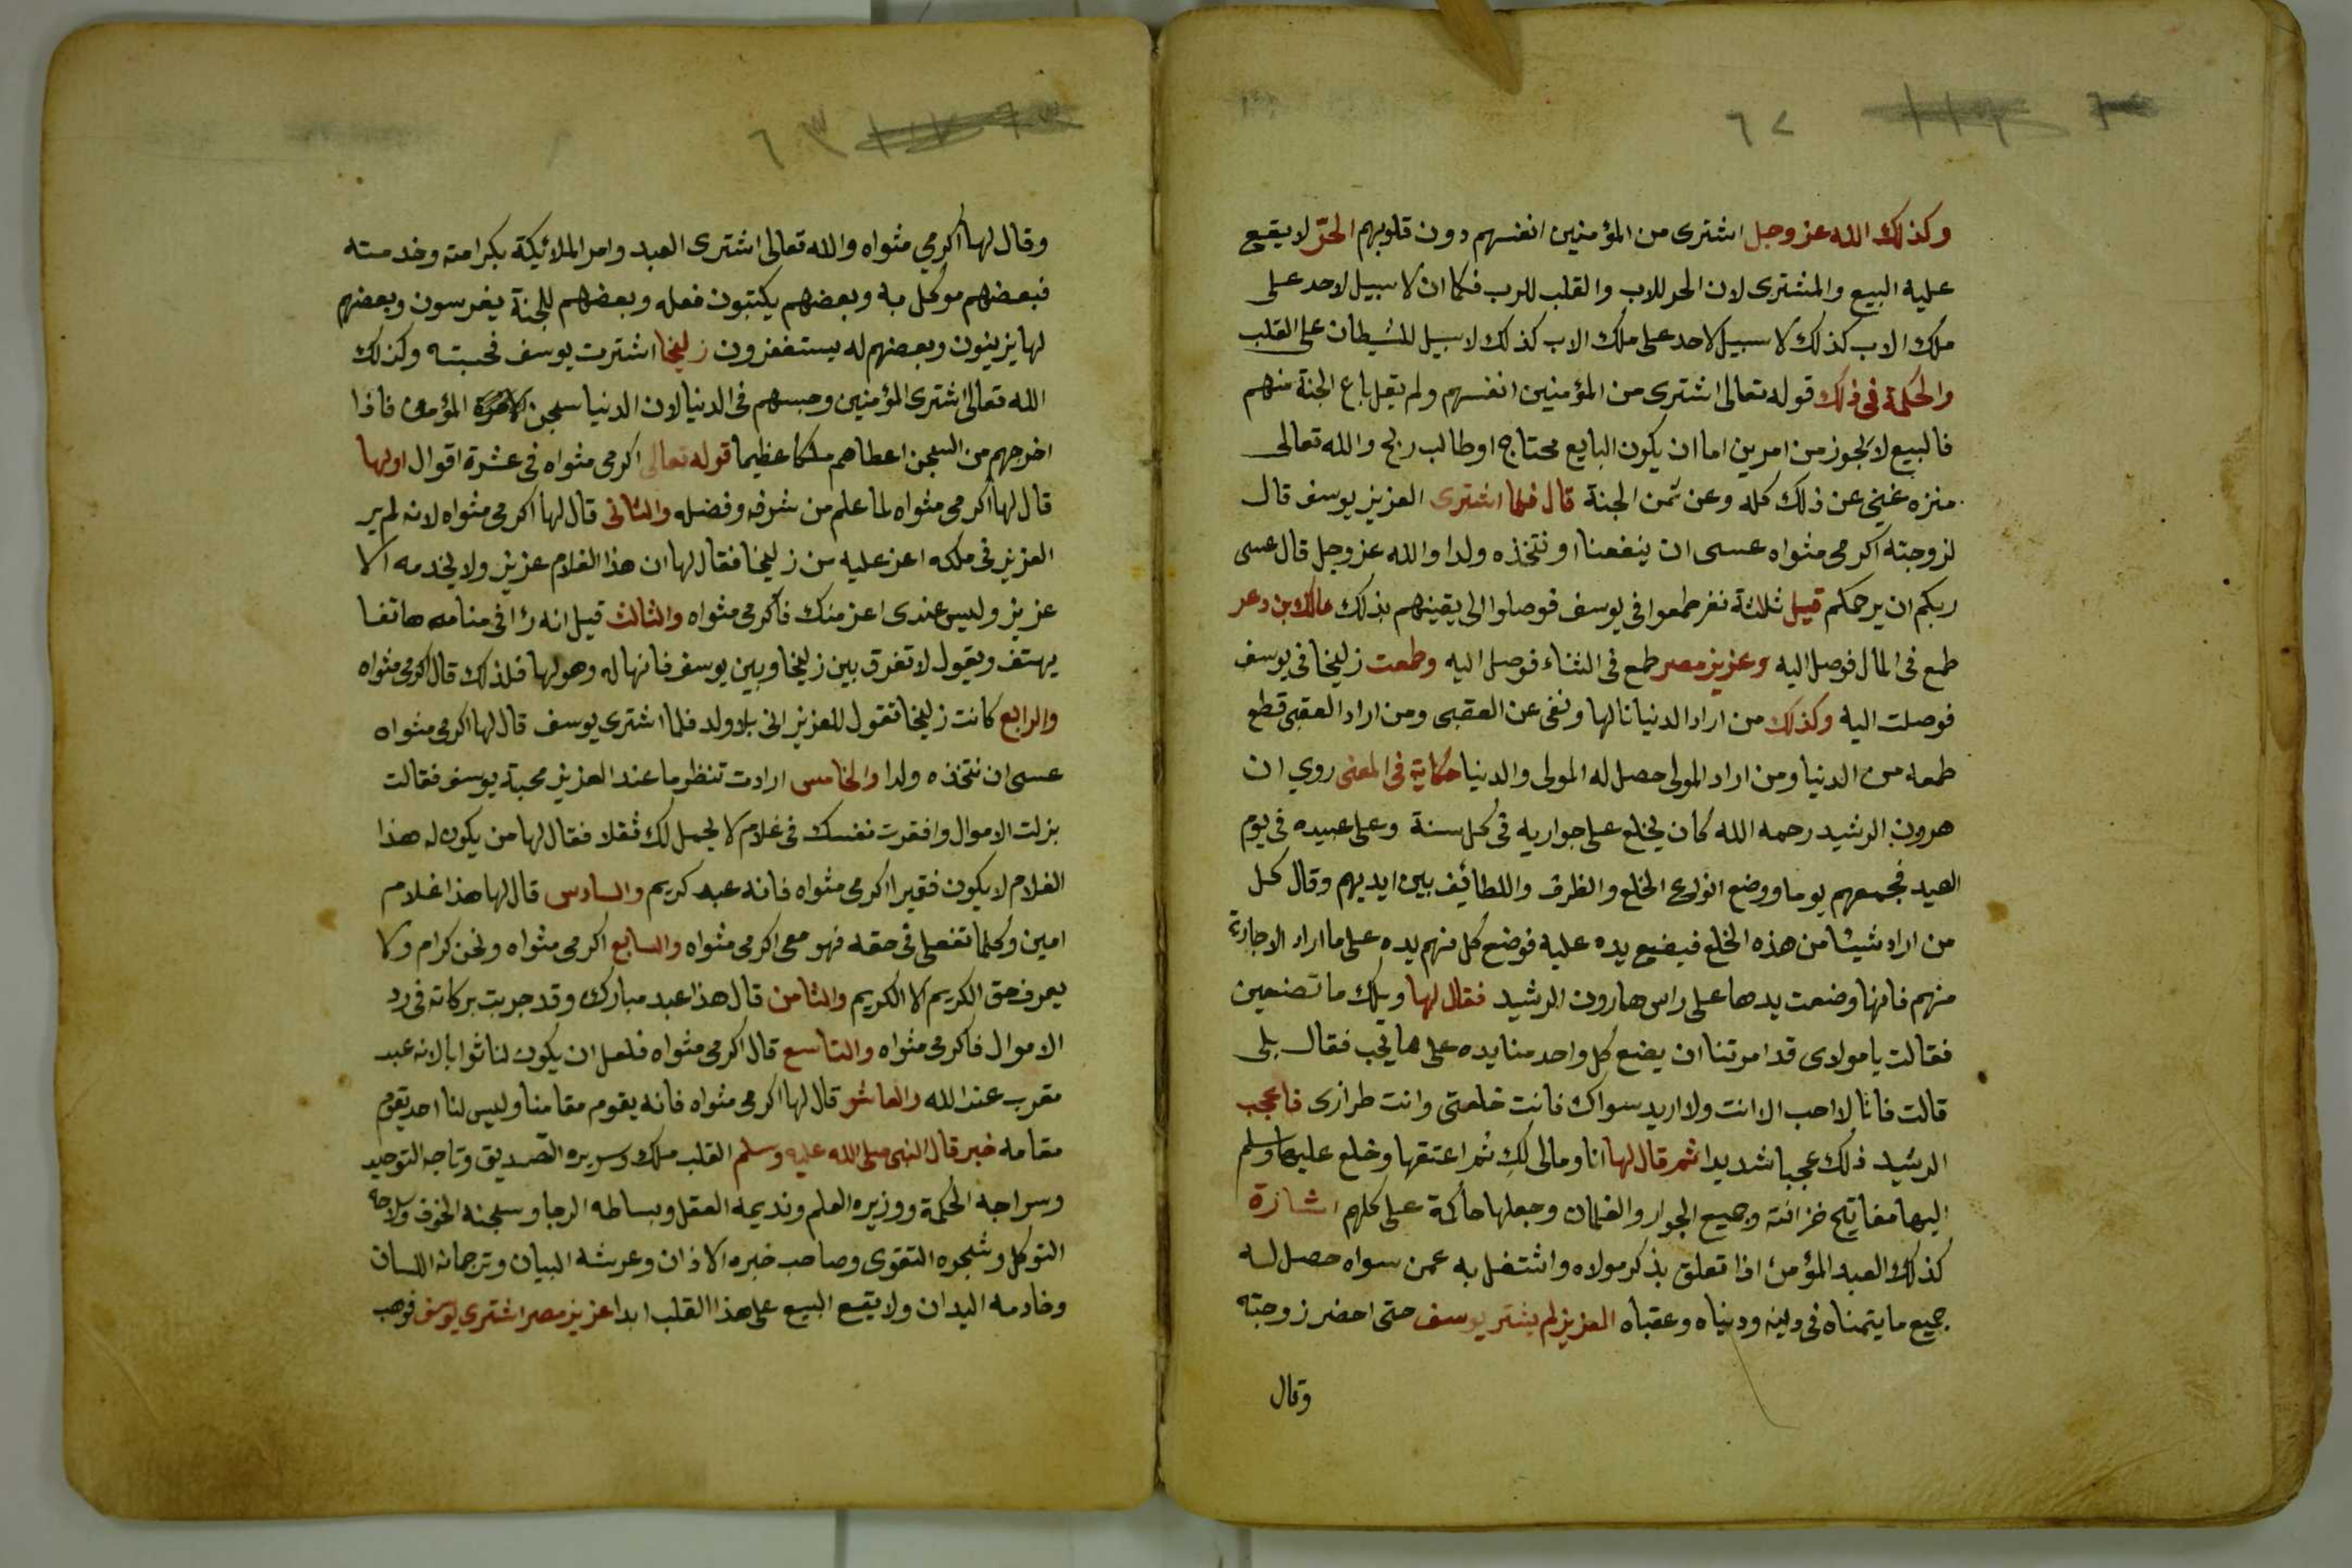 ٦٢
وكذلك الله عز وجل اشترى من المؤمنين انفسهم دون قلوبهم الحرّ لا يقع
عليه البيع والمشترى لان الحر للاب والقلب للرب فكما ان لا سبيل لاحد على
ملك الاب كذلك لا سبيل لاحد على ملك الاب كذلك لا سبيل للشيطان على القلب
والحكمة فى ذلك قوله تعالى اشترى من المؤمنين انفسهم ولم يقل باع الجنة منهم
فالبيع لا يجوز من امرين اما ان يكون البايع محتاج او طالب ربح والله تعالى
منزه غني عن ذلك كله وعن ثمن الجنة قال فلما اشترى العزيز يوسف قال
لزوجته اكرمى مثواه عسى ان ينفعنا او نتخذه ولدا والله عز وجل قال عسى
ربكم ان يرحمكم قيل ثلاثة نفر طمعوا فى يوسف فوصلوا الى يقينهم بذلك مالك بن دعر
طمع فى المال فوصل اليه وعزيز مصر طمع فى الثناء فوصل اليه وطمعت زليخا فى يوسف
فوصلت اليه وكذلك من اراد الدنيا نالها ونفى عن العقبى ومن اراد العقبى قطع
طمعه من الدنيا ومن اراد المولى حصل له المولى والدنيا حكاية فى المعنى روي ان
هرون الرشيد رحمه الله كان يخلع على جواريه فى كل سنة وعلى عبيده فى يوم
العيد فجمعهم يوما ووضع انواع الخلع والظرف واللطائيف بين ايديهم وقال كل
من اراد شيئا من هذه الخلع فيضع يده عليه فوضع كل منهم يده على ما اراد الا جارية
منهم فانها وضعت يدها على راس هارون الرشيد فقال لها ويلك ما تصنعين
فقالت يا مولاى قد امرتنا ان يضع كل واحد منا يده على ما يحب فقال بلى
قالت فانا لا احب الا انت ولا اريد سواك فانت خلعتى وانت طرازى فاعجب
الرشيد ذلك عجبا شديدا ثم قال لها انا ومالى لكِ ثم اعتقها وخلع عليها وسلم
اليها مفاتيح خزائنه وجميع الجوار والغلمان وجعلها حاكمة على كلهم اشارة
كذلك العبد المؤمن اذا تعلق بذكر مولاه واشتغل به عمن سواه حصل له
جميع ما يتمناه فى دينه ودنياه وعقباه العزيز لم يشتر يوسف حتى احضر زوجته
وقال
٦٣
وقال لها اكرمي مثواه والله تعالى اشترى العبد وامر الملائيكة بكرامته وخدمته
فبعضهم موكل به وبعضهم يكتبون فعله وبعضهم للجنة يغرسون وبعضهم
لها يزينون وبعضهم له يستغفرون زليخا اشترت يوسف فحبسته وكذلك
الله تعالى اشترى المؤمنين وحبسهم فى الدنيا لان الدنيا سجن المؤمن فاذا
اخرجهم من السجن اعطاهم ملكا عظيما قوله تعالى اكرمى مثواه فى عشرة اقوال اولها
قال لها اكرمى مثواه لما علم من شرفه وفضله والثانى قال لها اكرمى مثواه لانه لم ير
العزيز فى ملكه اعز عليه من زليخا فقال لها ان هذا الغلام عزيز ولا يخدمه الا
عزيز وليس عندى اعز منك فاكرمى مثواه والثالث قيل انه رأ فى منامه هاتفا
يهتف ويقول لا تفرق بين زليخا وبين يوسف فانها له وهو لها فلذلك قال اكرمى مثواه
والرابع كانت زليخا تقول للعزيز انى بلا ولد فلما اشترى يوسف قال لها اكرمى مثواه
عسى ان نتخذه ولدا والخامس ارادت تنظر ما عند العزيز محبة يوسف فقالت
بزلت الاموال وافقرت نفسك فى غلام لا يحمل لك ثقلا فقال لها من يكون له هذا
الغلام لا يكون فقيرا اكرمى مثواه فانه عبد كريم والسادس قال لها هذا غلام
امين وكلما تفعلى فى حقه فهو معى اكرمى مثواه والسابع اكرمى مثواه ونحن كرام ولا
يعرف حق الكريم الا الكريم والثامن قال هذا عبد مبارك وقد جربت بركاته فى رد
الاموال فاكرمى مثواه والتاسع قال اكرمى مثواه فلعل ان يكون لنا ثوابا لانه عبد
مقرب عند الله والعاشر قال لها اكرمى مثواه فانه يقوم مقامنا وليس لنا احد يقوم
مقامه خبر قال النبى صلى الله عليه وسلم القلب ملك وسريره الصديق وتاجه التوحيد
وسراجه الحكمة ووزيره العلم ونديمه العقل وبساطه الرجا وسجنه الخوف وسلاحه
التوكل وشجره التقوى وصاحب خبره الاذان وعرشه البيان وترجمانه اللسان
وخادمه اليدان ولا يقع البيع على هذا القلب ابدا عزيز مصر اشترى يوسف فوهب